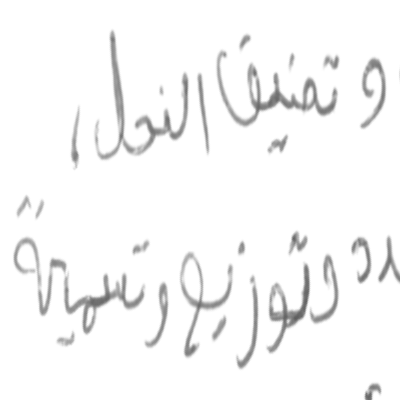 و تصنيف النحل،
وتوزيع وتسمية